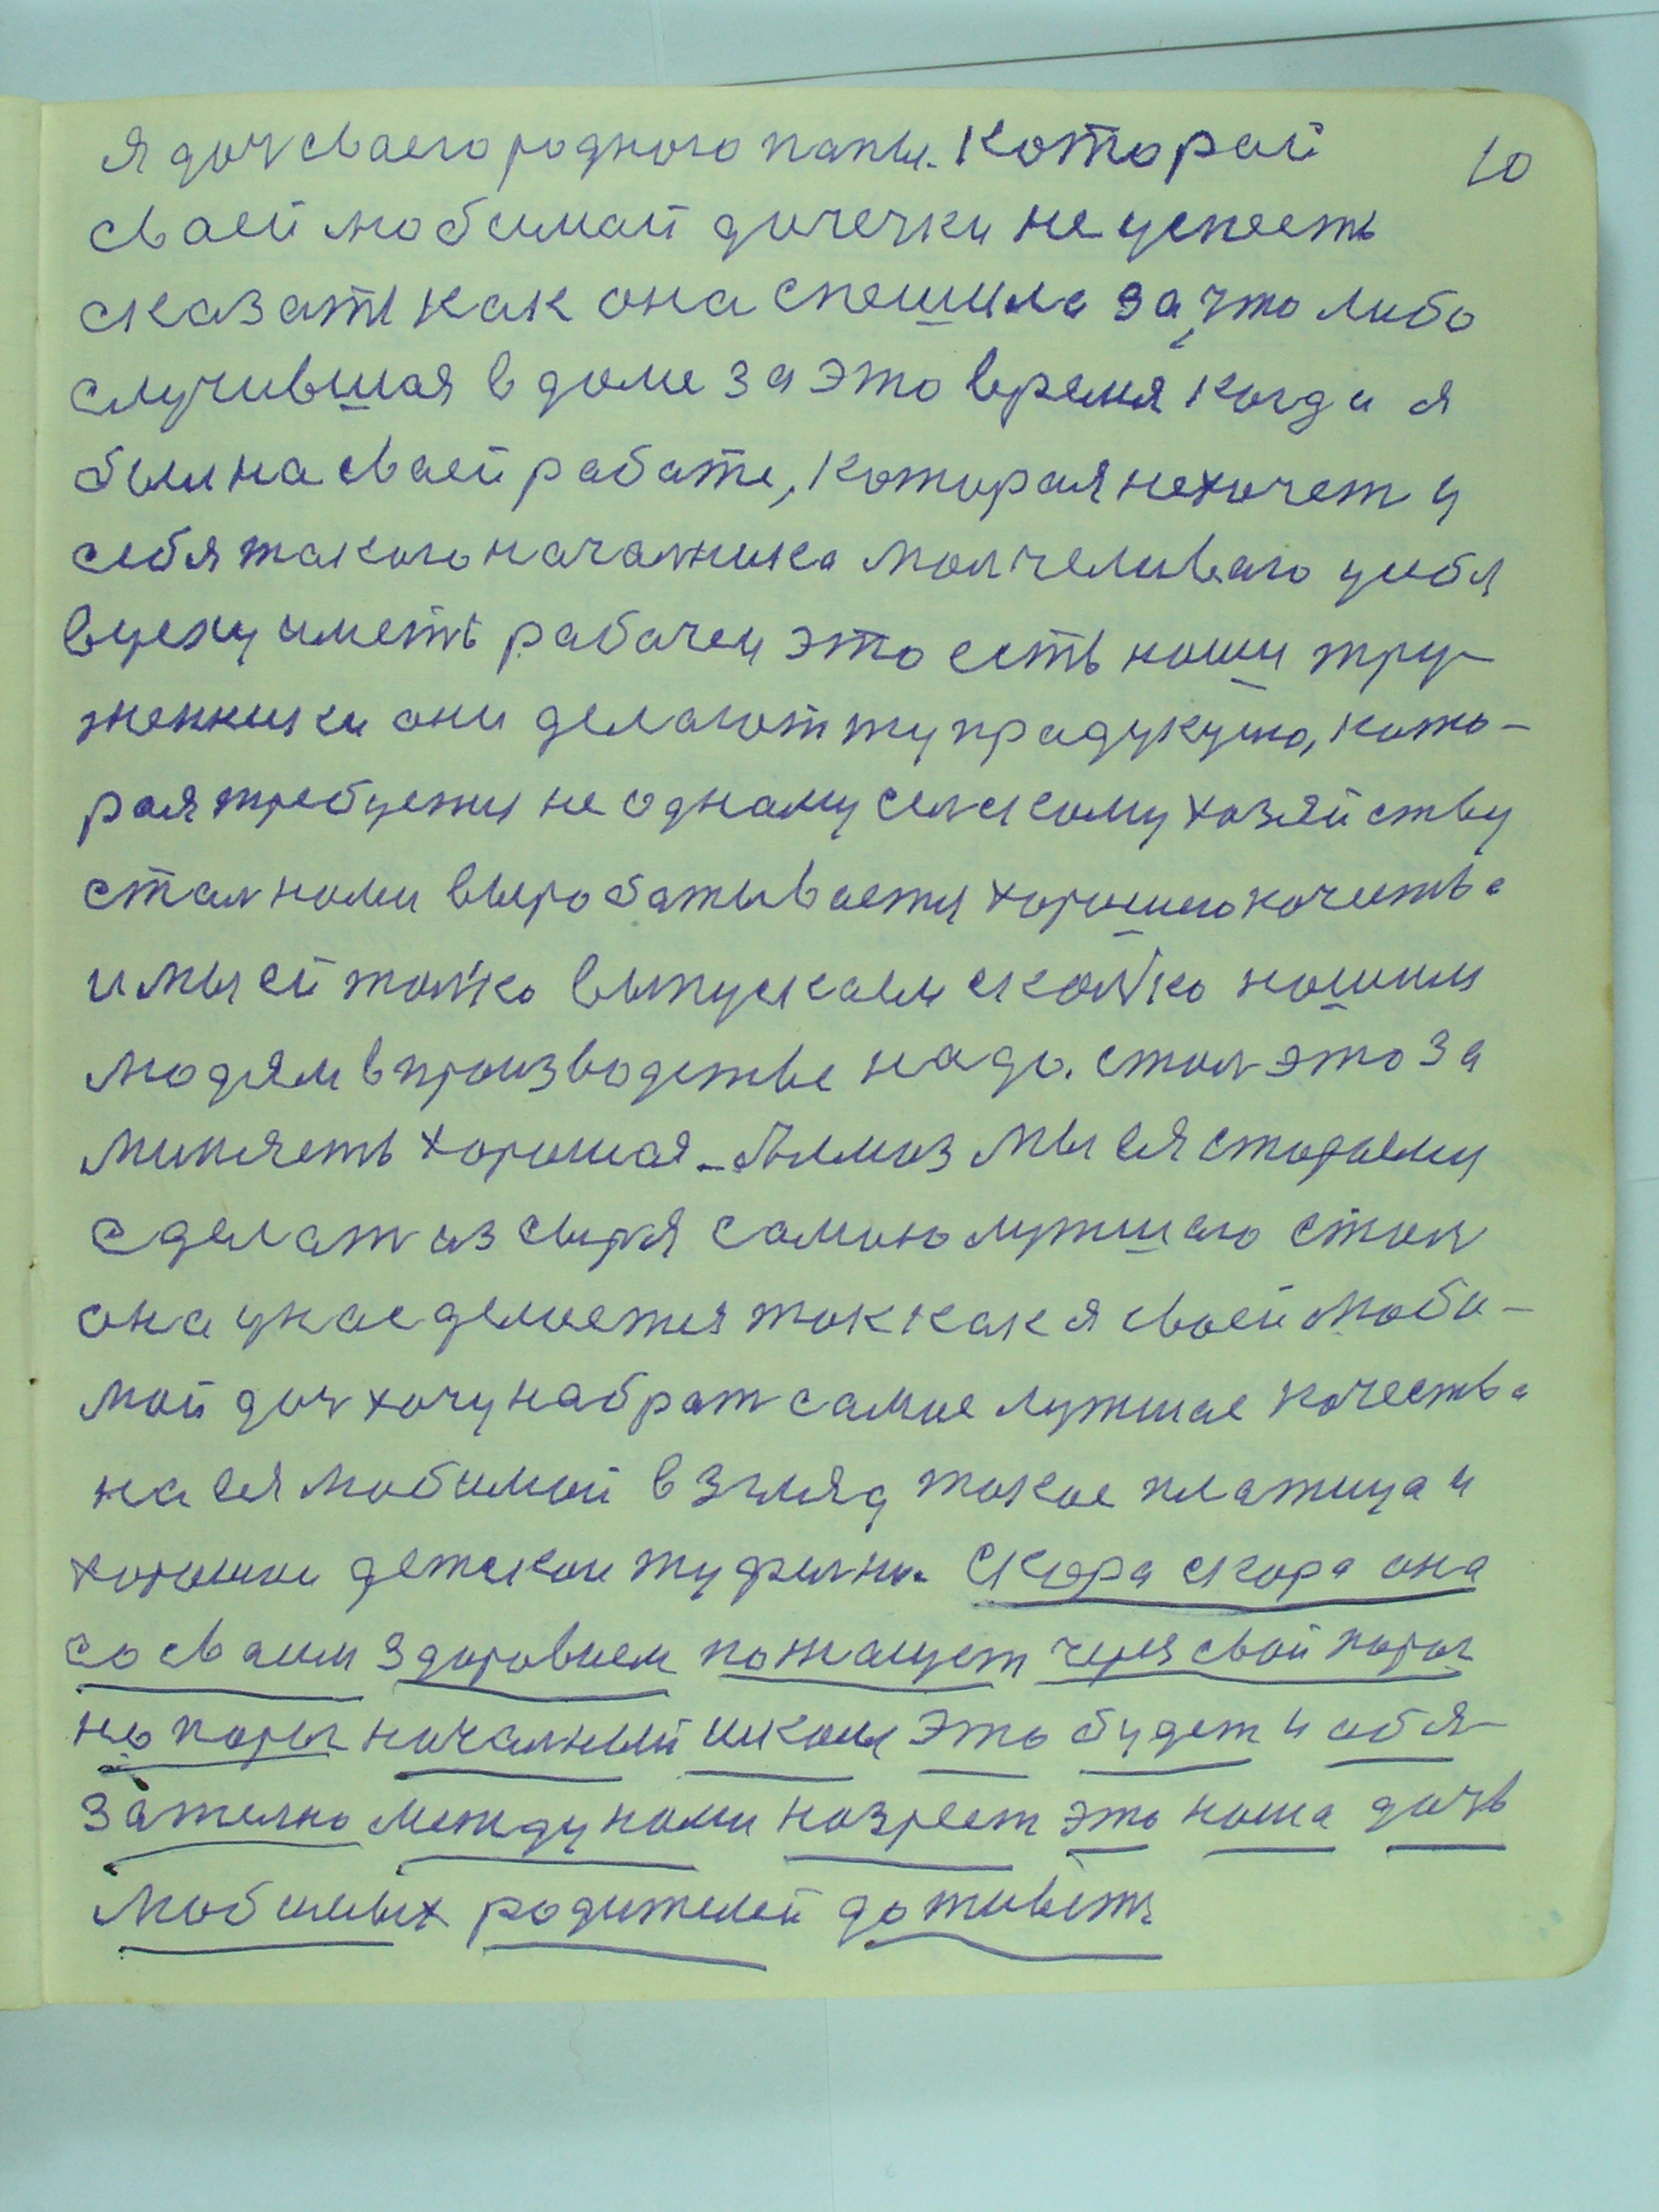 10
я доч сваего родного папы. Который
сваей любимай дочечки не успееть
сказать как она спешила за, что либо
случившая в доме за это время когда я
был на сваей работе, которая не хочет у
себя такого началника молчеливаго у себя
в цеху иметь рабочеи это есть наши тру-
женники они делают ту прадукцию, кото-
рая требуетця не одному селскому хозяйству
стал нами выробатываетця хорошего качества
и мы ей толко выпускаем сколко нашим
людям в производстве надо. стал это за
миняеть хорошая Алмаз мы ея стораемц
сделат из сыря самою лутшаго стал
она у нас делаетця так как я своей люби-
мой доч хочу набрат самое лутшае качества
на ея любимой взгляд такое платица и
хорошии детскои туфелки. Скора скора она
со сваим здоровием пожалует через свой порог
на порог началный школы это будет и обя-
зателно между нами назреет это наша дочь
любимых родителей доживёть